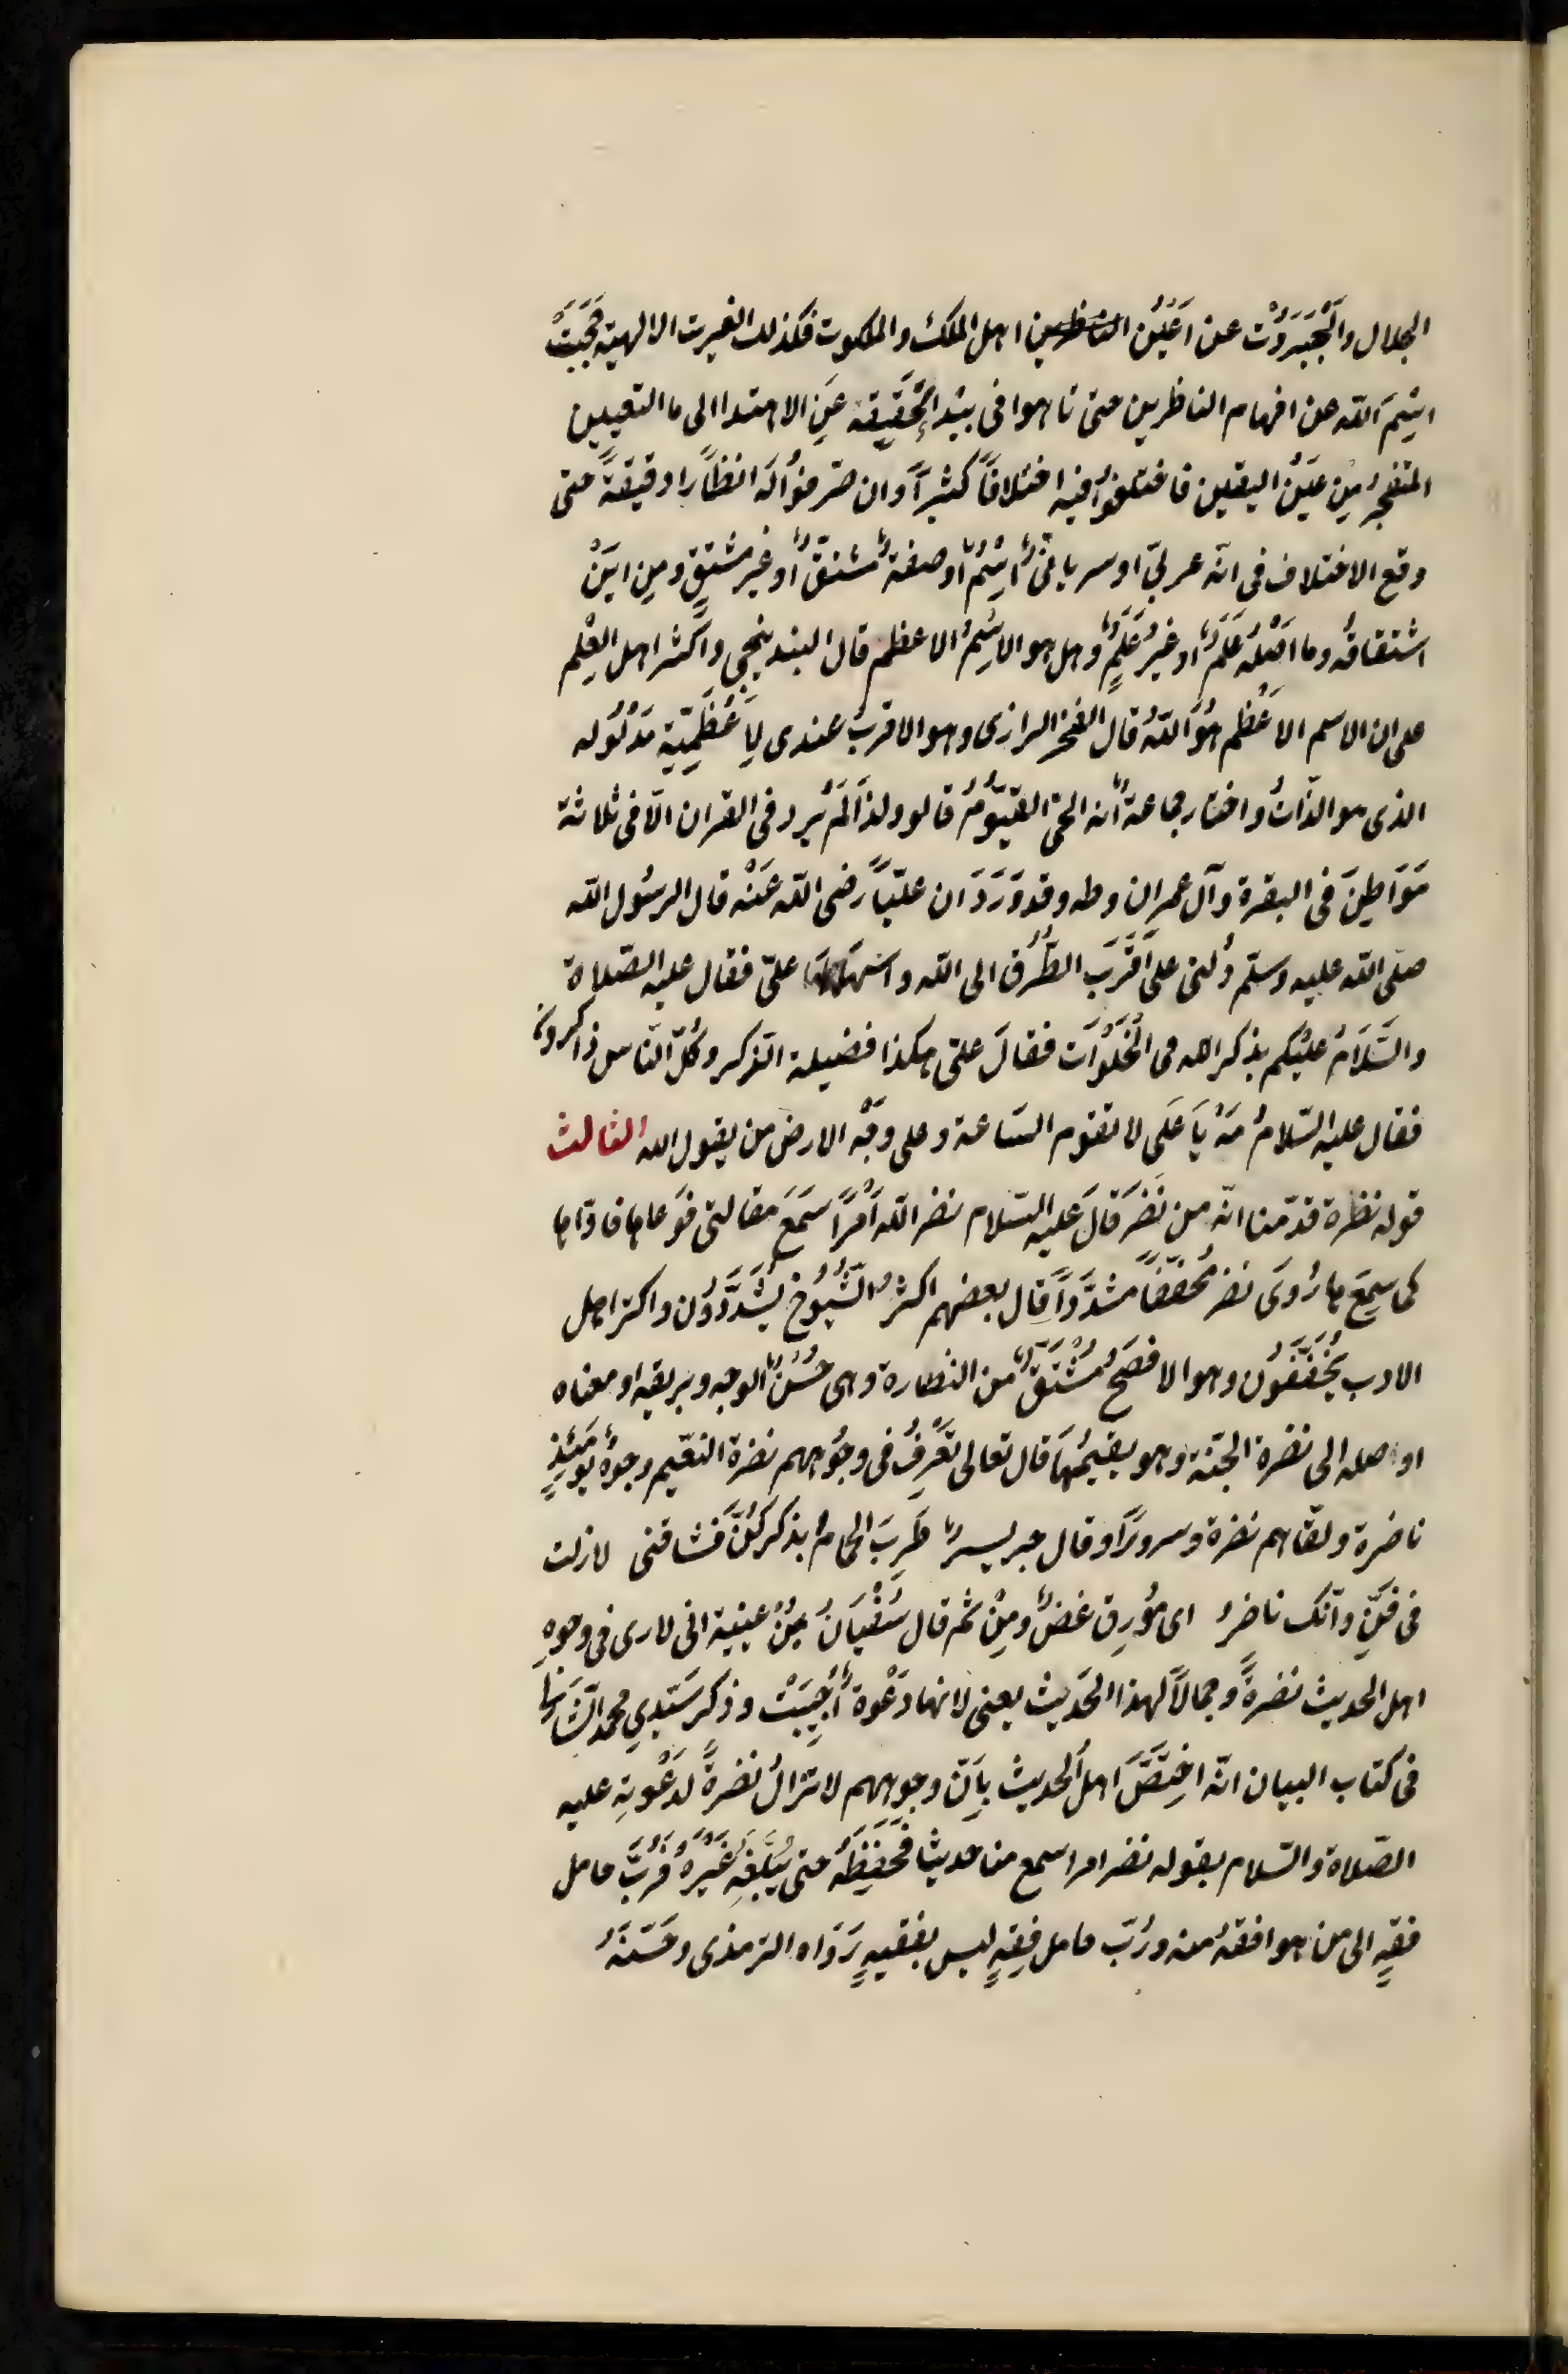 الجلال والجَبَرَوْت عن اَعْيُن الناظرين اهل الملك والملكوت فكذلك الغيرت الالهية حَجَبَتْ
اسْمَ الله عن افهام الناظرين حتى تاهوا فى بَيْداءِ تَحْقيقه عَنِ الاهتدا الى ما التعيين
المتفجرُ مِن عَيْنُ اليقين فاختلفُوا فيه اختلافًا كثيرًا وان صَرفوُا لَه انظَارًا دقيقةً حتى
وقع الاختلاف فى انّه عربىّ او سريانىٌّ اِسْمٌ اَو صفةٌ مشتقٌّ اَو غير مشتقٍ ومِن اَيْنْ
اشتقاقُه وما اَصْلُه عَلَمٌ او غيرُ عَلَمٍ وهل هو الاسْمُ الاعظم قال البندنيجى واكثر اهل العِلْم
على ان الاسم الاعْظم هُوَ اللهُ قال الفخر الرازى وهو الاقربُ عندى لِاَعْظَمِيّة مَدْلُوله
الذى هو الذّاتُ واختار جماعةٌ اَنه الحىّ القَيّوُمُ قالو ولذا لَمْ يَرد فى القران الّا فى ثلاثة
مَوَاطِنَ فى البقرة وآل عمران وطه وقد وَرَدَ ان عليًّا رضى الله عَنْه قال الرسُول الله
صلى الله عليه وسلّم دُلنى على اَقْرَبَ الطُّرُق الى الله واسهلها علىّ فقال عليه الصّلاة
والسَّلَامُ عليْكم بذكر الله فى الخَلَوْاَت فقالَ علىّ هكذا فضيلة الذكر وكُلّ النّاس ذاكرونَ
فقال عليه السّلامُ مَهْ يَا عَلى لا تقوم السّاعة وعلى وَجْه الارض من يقول الله الثالث
قوله نظرة قدّمنا انّه من نَضَرَ قالَ عَليه السّلام نضر الله اَمْرًا سَمَعَ مقالتى فوَعاها فادّاها
كما سمِعَها رُوىَ نضر مُخفّفًا مشَدَّدًا قال بعضهم اكثرُ الشّيُوُخ يُشَدَّدُوُن واكثر اهل
الادب يُخَفّفُوُن وهو الافصَحُ مُشْتَقٌّ من النضارة وهى حُسْنُ الوجه وبريقه او معناه
اوصله الى نضرة الجنّة وهو يقيمُهَا قال تعالى تَعْرفُ فى وجُوههم نضرة النعّيم وجوُهٌ يَومَئذٍ
ناضرة ولقّاهم نضرة وسرورًا وقال جريرٌ طَرِبَ الحمامُ بذكركُنَّ فشاقنى لازلت
فى فَنَنٍ وآنك ناضرُ اى مُورِق غضٌّ ومِنْ ثم قال سُفْيَانُ بْنُ عيينة انى لارى فى وجوهِ
اهل الحديث نضرةً وجمالًا لهذا الحَديث يعنى لانها دَعْوةٌ اُجِيبَتْ وذكر سَيّدي محمد
فى كتاب البيان انّه اخِتَصَّ اهلُ الحديث بِاَنّ وجوههم لا تزالُ نضرةً لدَعْوَتِه عليه
الصّلاة والسّلام بقوله نضر امراسمع منا حديثا فحَفِظَهُ حتى يُبَلّغه غَيْرَهُ فَرُبَّ حامل
فقيهٍ الى من هو افقهُ منه ورُبّ حامل فِقهٍ ليس بفقيهٍ رَوَاه الترمذى وحَسّنَهُ